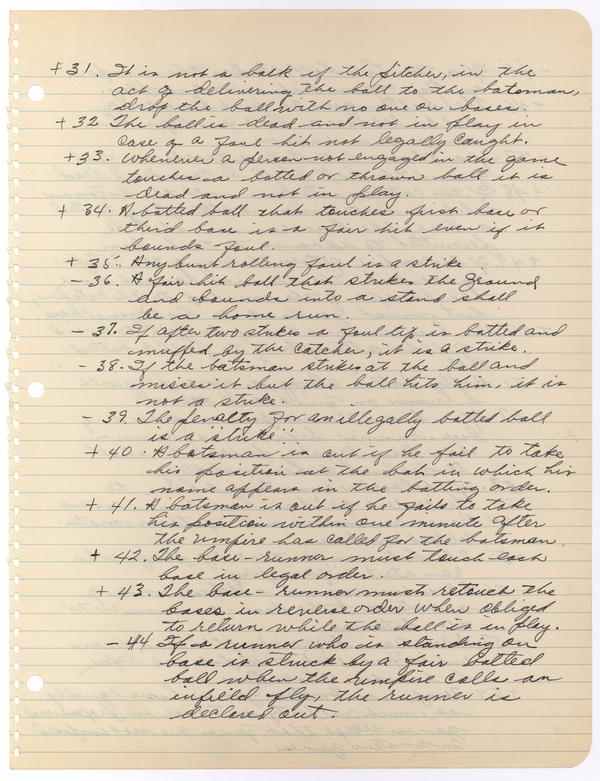 + 31. It is not a balk if the pitcher, in the
act of delivering the ball to the batsman,
drop the ball with no one on bases.
+ 32 The ball is dead and not in play in
case of a foul hit not legally caught.
+ 33. Whenever a person not engaged in the game
touches a batted or thrown ball it is
dead and not in play.
+ 34. A batted ball that touches first base or
third base is a fair hit even if it
bounds foul.
+ 35. Any bunt rolling foul is a strike.
- 36. A fair hit ball that strikes the ground
and bounds into a stand shall
be a home run.
- 37. If after two strikes a foul tip is batted and
muffed by the catcher, it is a strike.
- 38. If the batsman strikes at the ball and
misses it but the ball hits him, it is
not a strike.
- 39. The penalty for an illegally batted ball
is a "strike".
+ 40. A batsman is out if he fail to take
his position at the bat in which his
name appears in the batting order.
+ 41. A batsman is out if he fails to take
his position within one minute after
the umpire has called for the batsman.
+ 42. The base-runner must touch each
base in legal order.
+ 43. The base-runner must retouch the
bases in reverse order when obliged
to return while the ball is in play.
- 44 If a runner who is standing on
base is struck by a fair batted
ball when the umpire calls an
infield fly, the runner is
declared out.